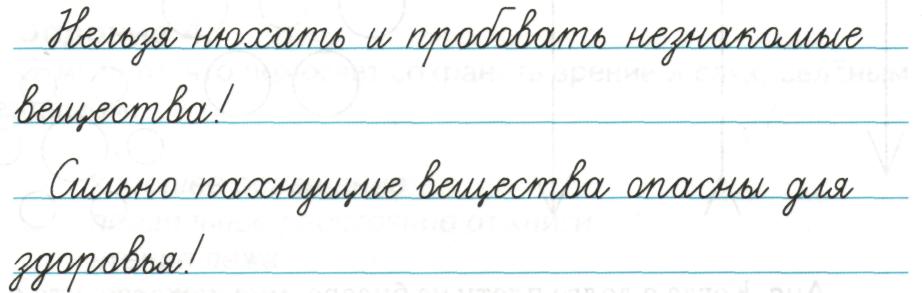 Нельзя нюхать и пробовать незнакомые
вещества!
Сильно пахнущие вещества опасны для
здоровья!